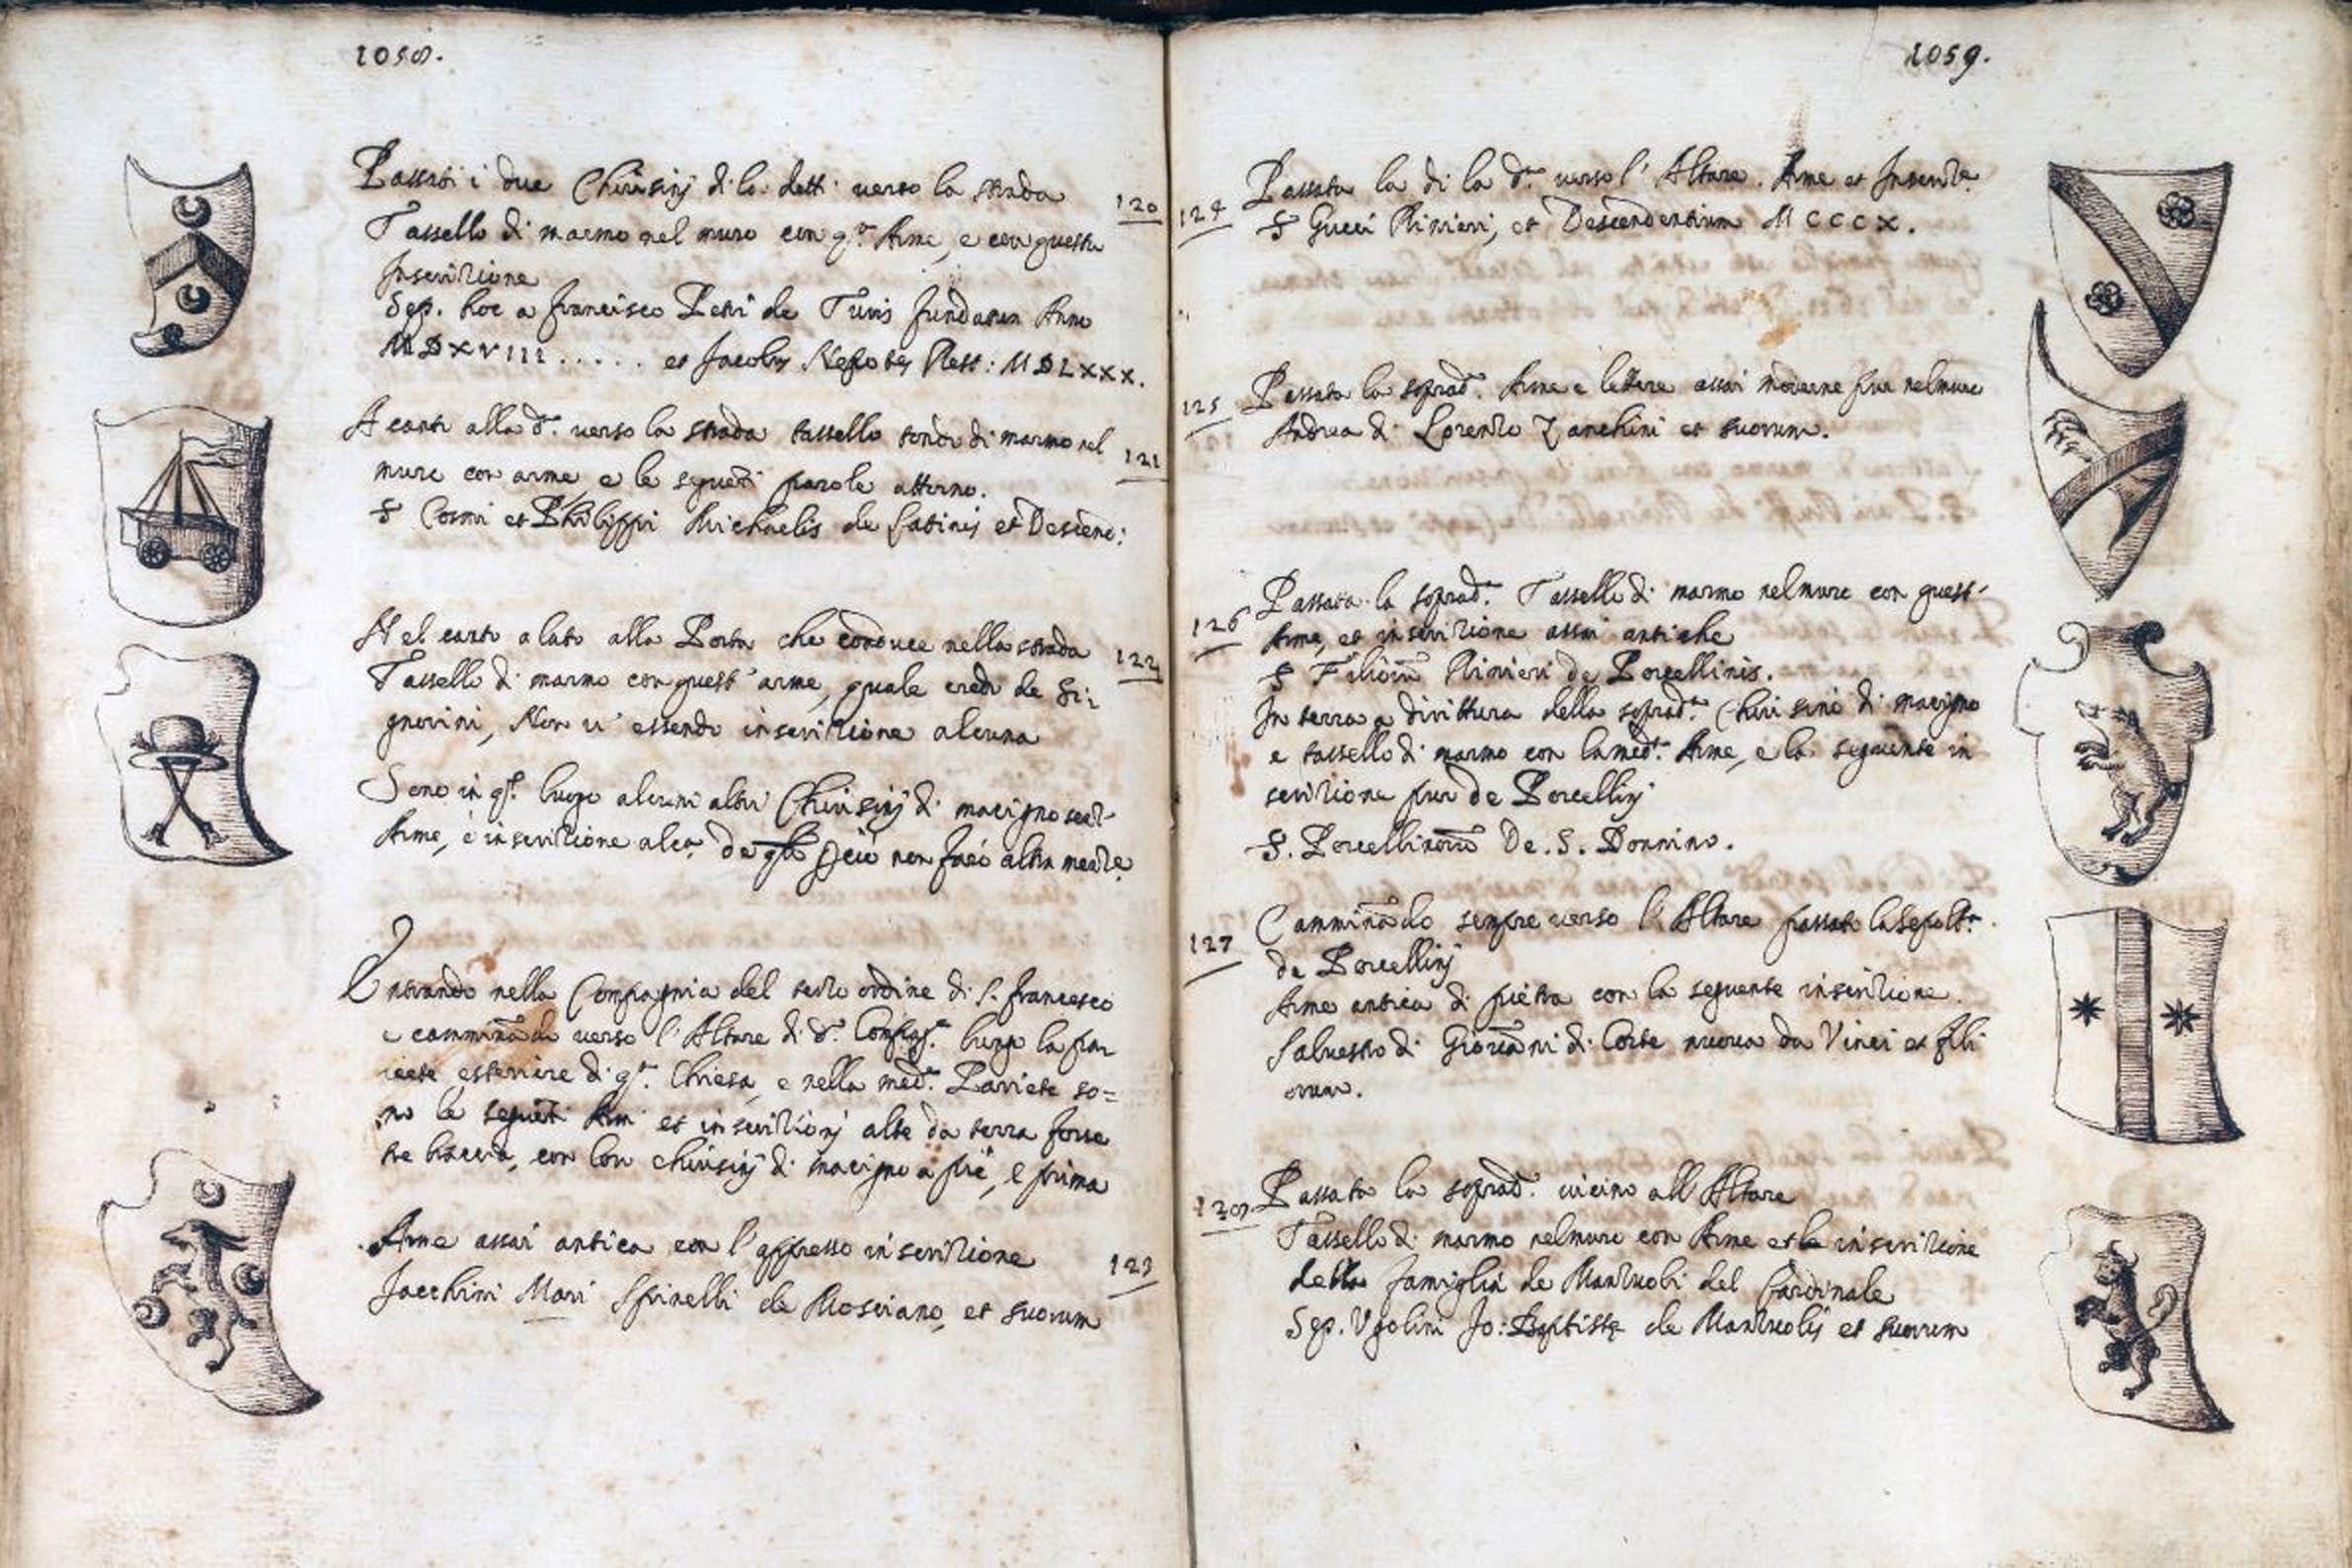 1058.
Passati i due Chiusinj di la detti verso la strada
120
Tassello di marmo nel muro con q.ta Arme, e con questa
Inscrizione
Sep. hoc a Francisco Petri de Turis fundatum Anno
MDXVIII ..... et Jacobus Nepotes Rest: MDLXXX.
A canto alla d.a verso la strada tassello tondo di marmo nel
121
muro con arme e le seguēti parole attorno.
S Cosmi et Philippi Michaelis de Catinis et Descēnd:
Nel canto a lato alla Porta che conduce nella strada
122
Tassello di marmo con quest' arme, quale credo de Si:
gnorini, Non v' essendo inscrizione alcuna
Sono in q.to luogo alcuni altri Chiusinj di macigno senz'
Arme, e inscrizione alca. de qli p ciò non facó altra menze.
Entrando nella Compagnia del terzo ordine di S. Francesco
e camminādo verso l'Altare di d.a Compag.a lungo la par
iete esteriore di q.ta Chiesa, e nella med.a Pariete so=
no le seguēti Armi et inscrizionj alte da terra forse
tre braccia, con lor chiusinj di macigno a piè, e prima
Arme assai antica con l'appresso inscrizione
123
Jacchini Mari Spinelli de Mosciano, et suorum
1059.
124
Passata la di la d.a verso l'Altare. Arme et Inscriz.e
S Gucci Rinieri, et Descendentium MCCCX.
125
Passata la soprad.a Arme e lettere assai moderne pur nel muro
Andrea di Lorenzo Zanchini et suorum.
126
Passata la soprad.a Tassello di marmo nel muro con quest'
Arme, et inscrizione assai antiche
S Filiorū Rinieri de Porcellinis.
In terra a dirittura della soprad.a Chiusino di macigno
e tassello di marmo con la med.a Arme, e la seguente in
scrizione pur de Porcellinj
S. Porcellinorū De. S. Donnino.
127
Camminādo sempre verso l'Altare passata la Sepolt.a
de Porcellinj
Arme antica di pietra con la seguente inscrizione.
Salvestro di Giovāni di Corte nuova da Vinci et fili
orum.
128
Passata la soprad.a vicino all'Altare
Tassello di marmo nel muro con Arme et la inscrizione
della famiglia de Manzuoli del Cardinale
Sep. Vgolini Jo: Baptistę de Manzuolis et suorum